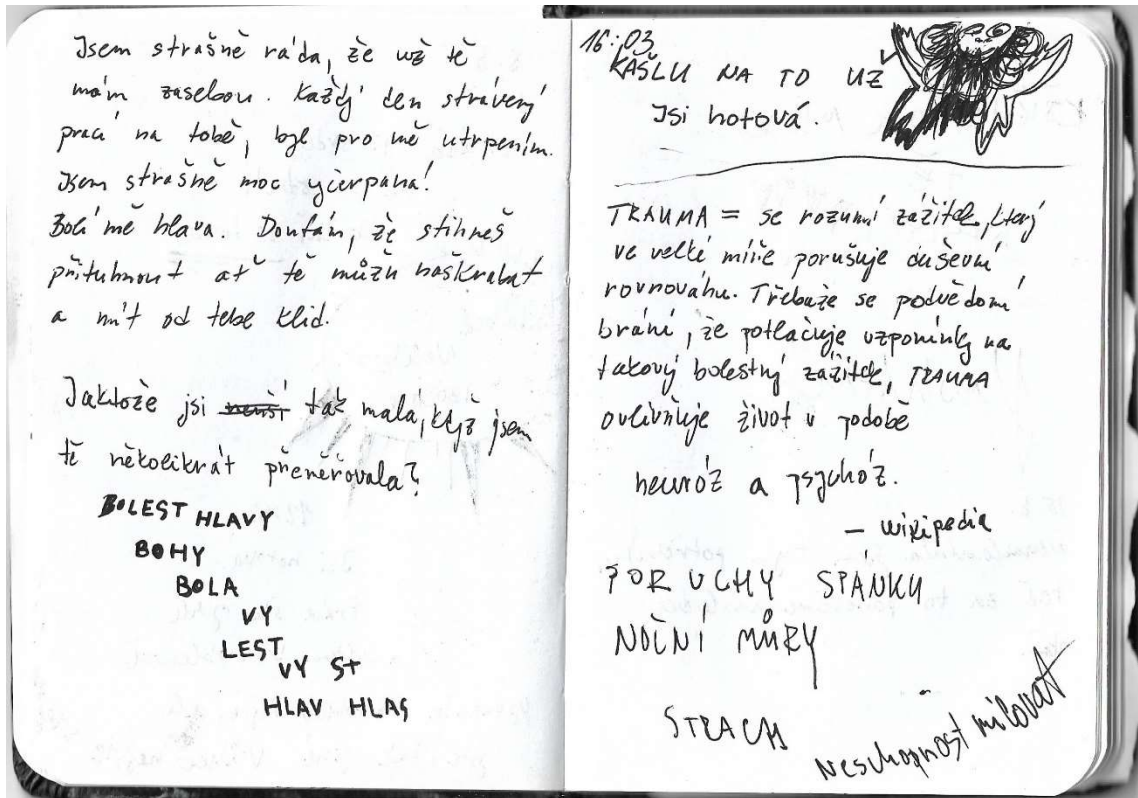 Jsem strašně ráda, že už tě
mám zasebou. Každý den strávený
prací na tobě, byl pro mě utrpením.
Jsem strašně moc yčerpaná!
Bolí mě hlava. Doufám, že stihneš
přituhnout ať tě můžu naškrabat
a mít od tebe klid.
Jaktože jsi tak mala, když jsem
tě několikrát přeměřovala?
BOLEST HLAVY
BOHY
BOLA
VY
LEST
VY ST
HLAV HLAS
16:03
KAŠLU NA TO UŽ
Jsi hotová.
TRAUMA = se rozumí zážitek, který
ve velké míře porušuje duševní
rovnováhu. Třebaže se podvědomí
brání, že potlačuje vzpomínky na
takový bolestný zážitek, TRAUMA
ovlivňuje život v podobě
neuróz a psychóz.
– wikipedia
PORUCHY SPÁNKU
NOČNÍ MŮRY
STRACH
Neschopnost milovat